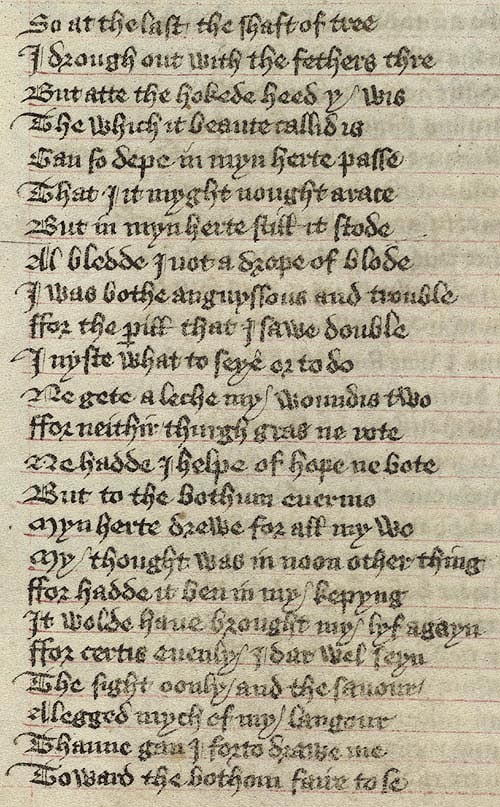 So at the last the shaft of tree
I drough out with the fethers thre
But atte the hokede heed y / wis
The which it beaute callid is
Gan so depe in myn herte passe
That I it myght nought arace
But in myn herte still it stode
Al bledde I not a drope of blode
I was bothe anguyssous and trouble
ffor the pill that I sawe double
I nyste what to seye or to do
Ne gete a leche my / woundis two
ffor neithir thurgh gras ne rote
Ne hadde I helpe of hope ne bote
But to the bothum euermo
Myn herte drewe for all my wo
My / thought was in noon other thing
ffor hadde it ben in my / kepyng
It wolde haue brought my / lyf agayn
ffor certis euenly / I dar wel seyn
The sight oonly / and the sauour
Alegged mych of my / langour
Thanne gan I forto drawe me
Toward the bothom faire to se